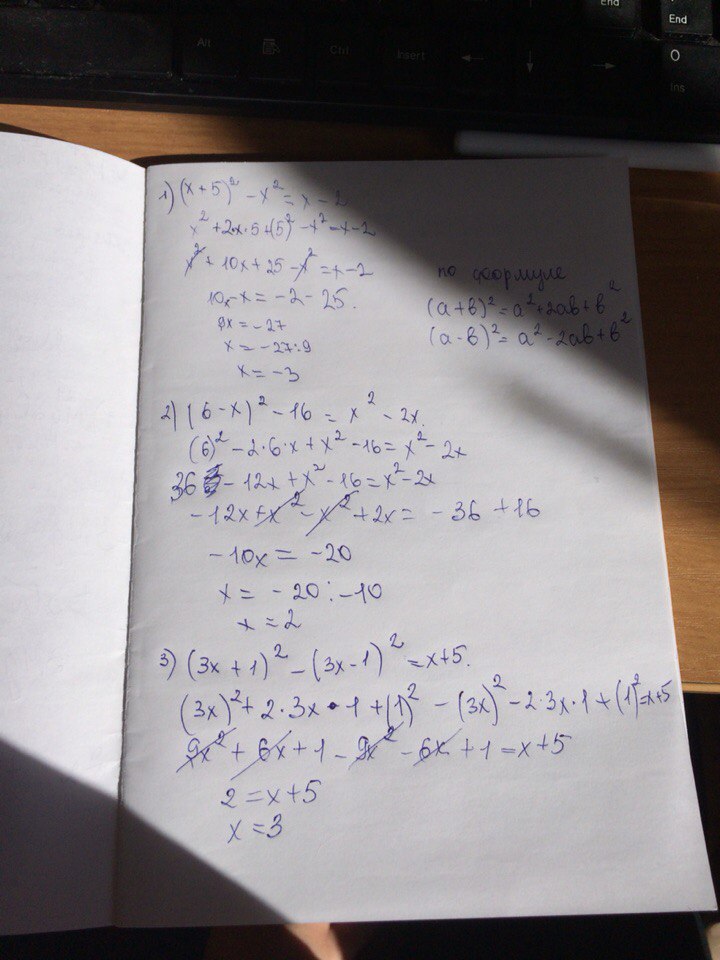 End
End
Alt
Ctrl
Insert
←
↓
→
0
Ins
1) (x+5)² - x² = x - 2
x² + 2x·5 + (5)² - x² = x - 2
x² + 10x + 25 - x² = x - 2
10x - x = -2 - 25.
9x = -27
x = -27:9
x = -3
по формуле
(a+b)² = a² + 2ab + b²
(a-b)² = a² - 2ab + b²
2) (6-x)² - 16 = x² - 2x.
(6)² - 2·6·x + x² - 16 = x² - 2x
36 - 12x + x² - 16 = x² - 2x
-12x + x² - x² + 2x = -36 + 16
-10x = -20
x = -20 : -10
x = 2
3) (3x+1)² - (3x-1)² = x+5.
(3x)² + 2·3x·1 + (1)² - (3x)² - 2·3x·1 + (1)² = x+5
9x² + 6x + 1 - 9x² - 6x + 1 = x+5
2 = x+5
x = 3